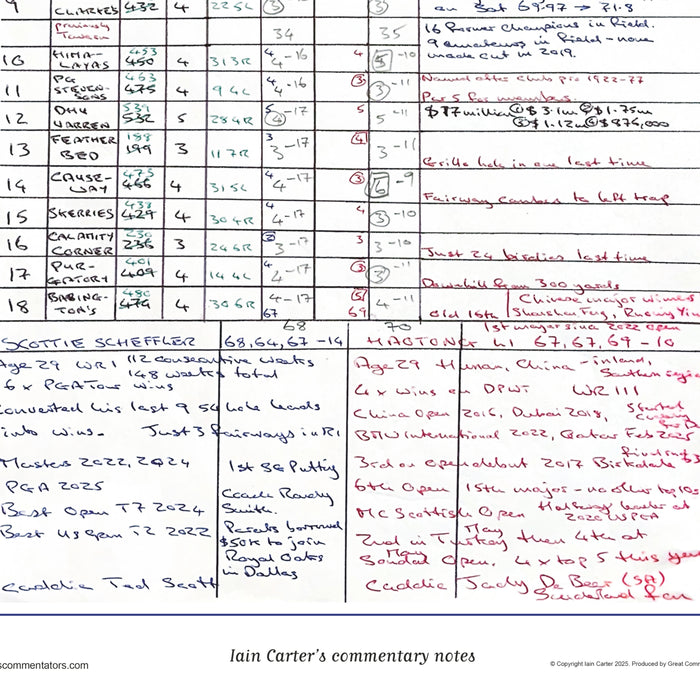 9 CLARKES 432 4 225L 3 3 on Sat 69.97 → 71.8
previously Tavern 34 35 16 former champions in field.
9 amateurs in field - none made cut in 2019.
10 HIMA-LAYAS 453 450 4 313R 4 4-16 4 5-10
11 PG STEVEN-SONS 463 475 4 94L 4 4-16 3 3-11 Named after club pro 1922-77
Par 5 for members.
12 DHU VARREN 531 532 5 284R 5 4-17 5 5-11 $17 million ① $3.1m ② $1.75m
③ $1.12m ④ $876,000
13 FEATHER BED 188 199 3 117R 3 3-17 4 3-11 Grillo hole in one last time
14 CAUSE-WAY 473 466 4 315L 4 4-17 3 6-9 Fairway cambers to left trap
15 SKERRIES 438 429 4 304R 4 4-17 4 3-10
16 CALAMITY CORNER 230 236 3 246R 2 3-17 3 3-10 Just 24 birdies last time
17 PUR-GATORY 401 409 4 144L 4 4-17 3 3-11 Downhill from 300 yards
18 BABING-TON'S 480 474 4 306R 4-17 5 4-11 Old 16th Chinese major winners
67 69 Shanshan Feng, Ruoning Yin
68 70 1st major since 2022 Open
SCOTTIE SCHEFFLER 68, 64, 67 -14 HAOTONG LI 67, 67, 69 -10
Age 29 WR1 112 consecutive weeks
148 weeks total
6 x PGA Tour wins
Converted his last 9 54 hole leads
into wins. Just 3 fairways in R1
Masters 2022, 2024 1st SG Putting
PGA 2025 Coach Randy Smith.
Best Open T7 2024
Best US Open T2 2022 Parents borrowed $50k to join Royal Oaks in Dallas
Caddie Ted Scott
Age 29 Hunan, China - inland, Southern
4 x wins on DPWT WR 111
China Open 2016, Dubai 2018, Started
BMW International 2022, Qatar Feb 2025
3rd on Open debut 2017 Birkdale
6th Open 15th major - no other top 10s
MC Scottish Open Halfway leader at 2020 USPGA
2nd in Turkey May then 4th at
Soudal Open. May 4 x top 5 this year
Caddie Jady De Beer (SA)
Sunderland fan
Iain Carter's commentary notes
scommentators.com
© Copyright Iain Carter 2025, Produced by Great Comm